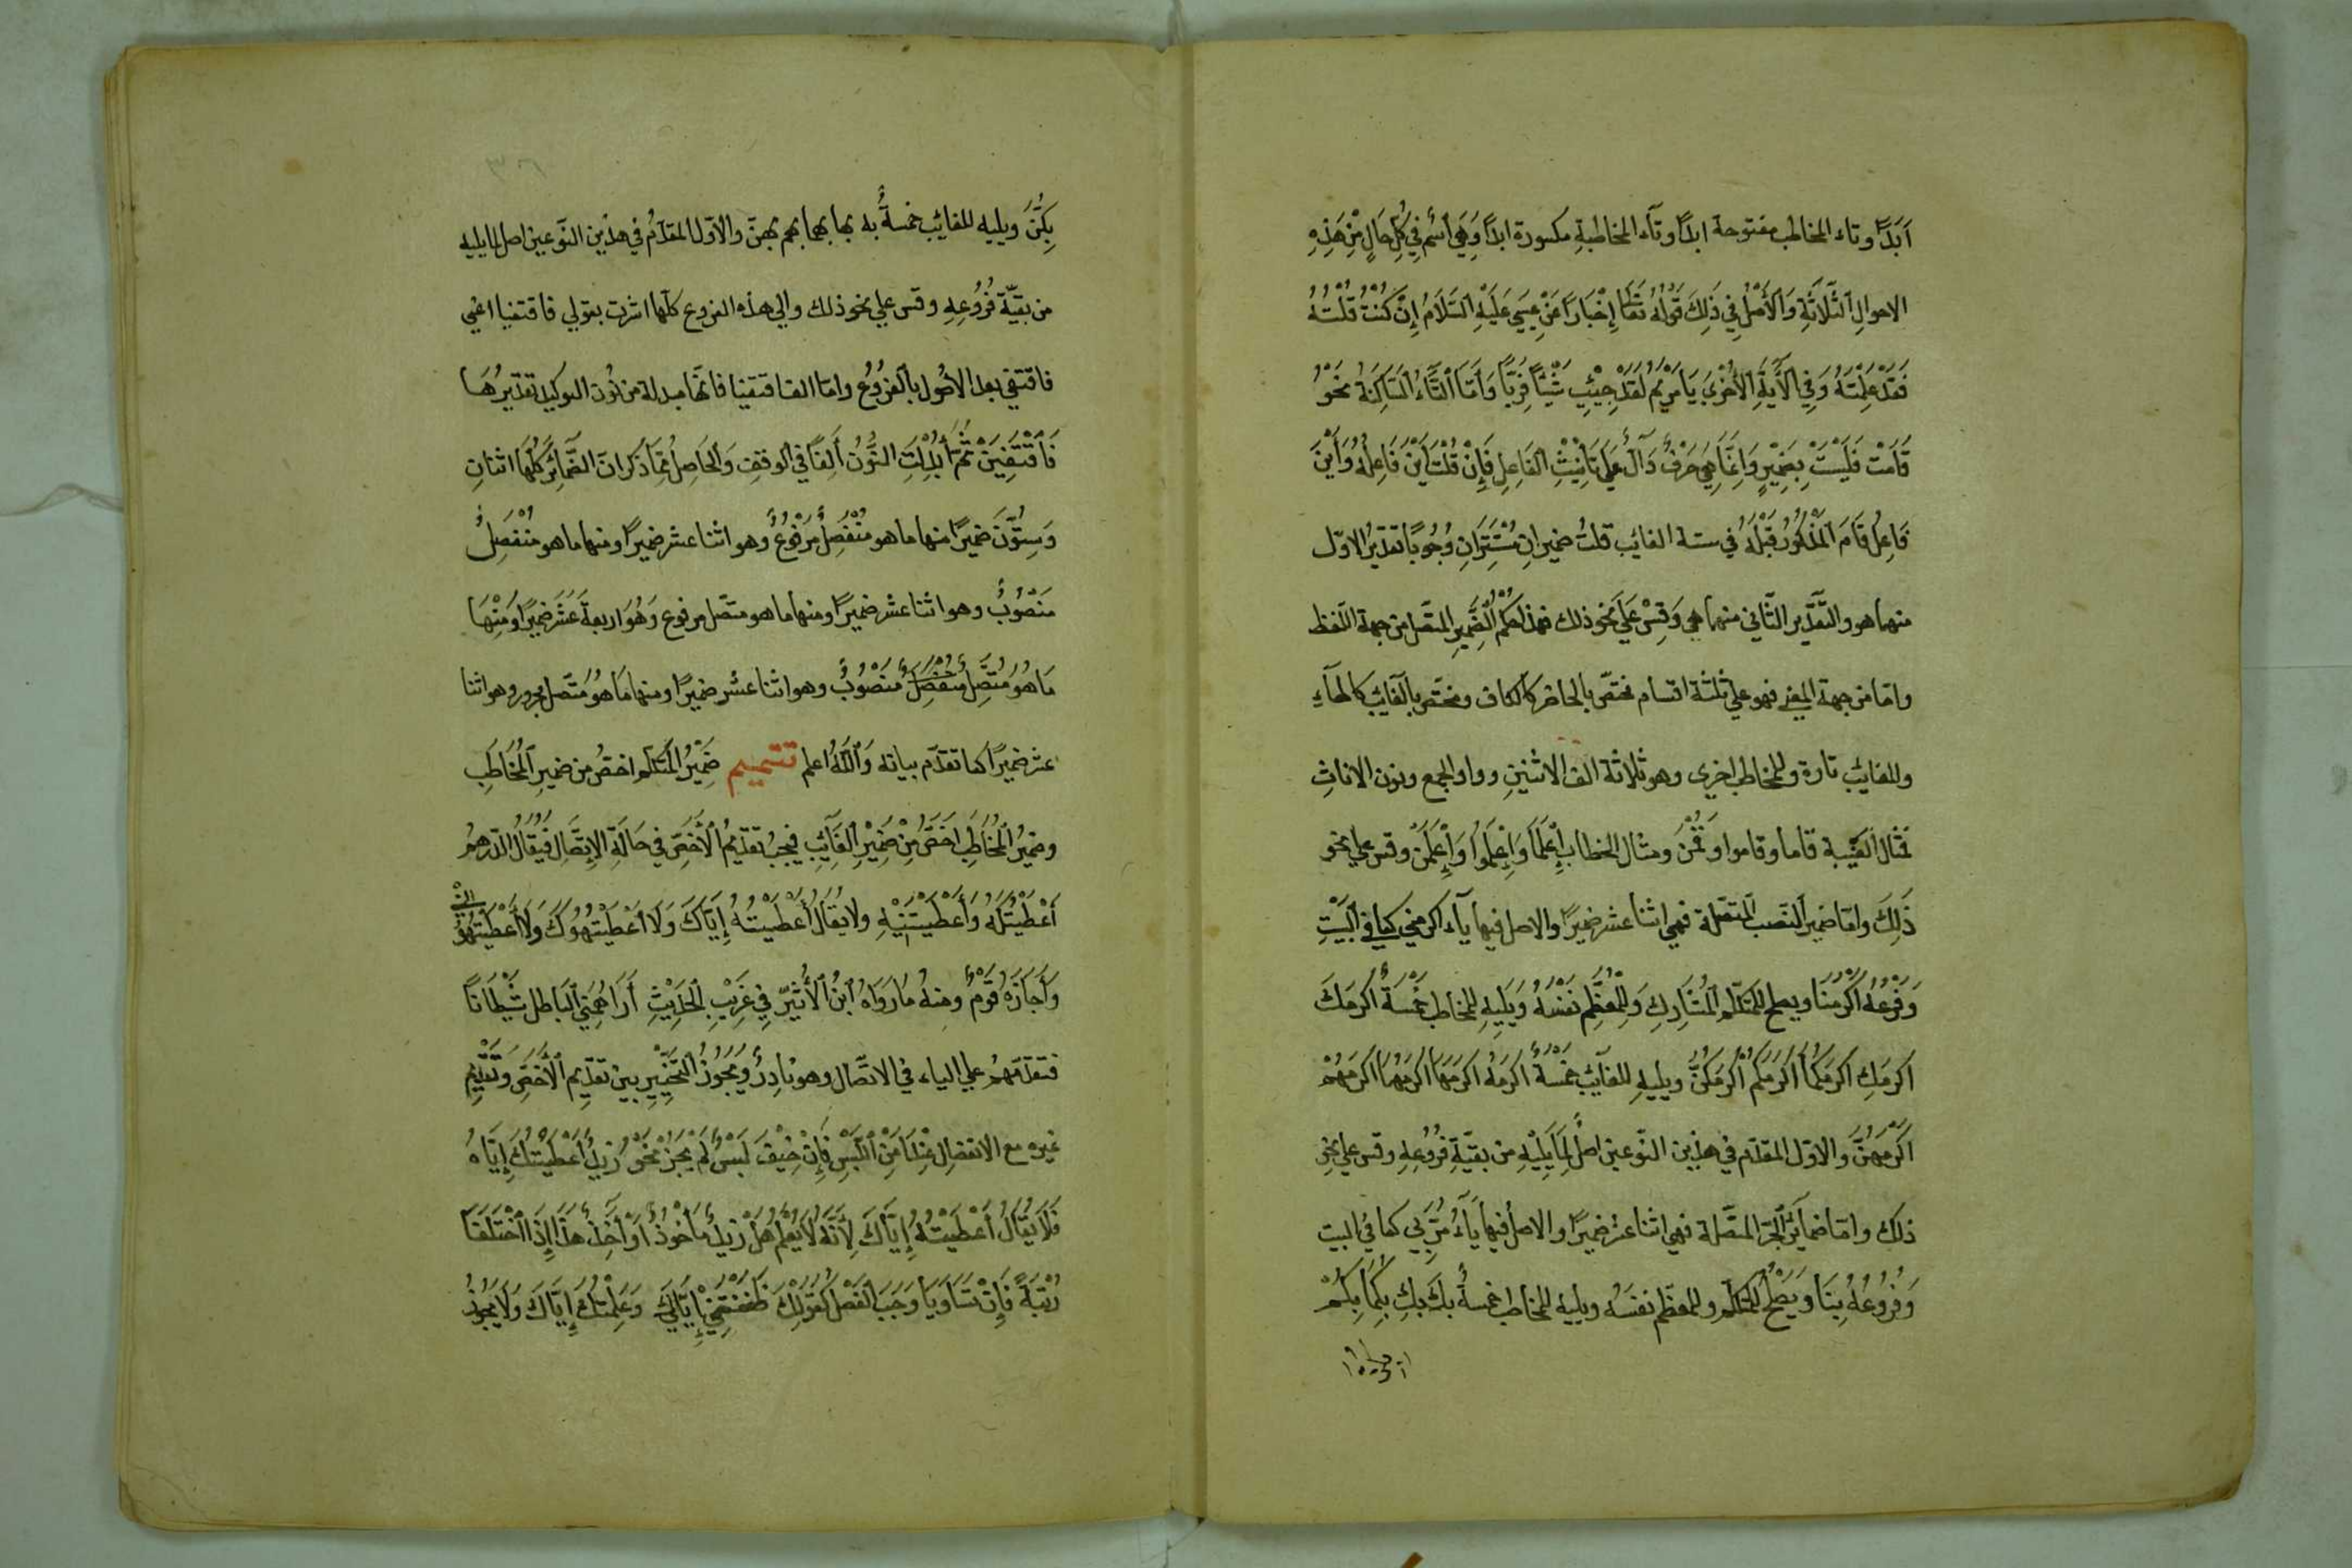 اَبَدًا وتاء المخاطب مفتوحة ابدًا وتَآء المخاطبةِ مكسورة ابدًا وَهِيَ اسْم فِي كُلِّ حَالٍ مِنْ هَذِهِ
الاحوالِ الثَّلَاثَةِ وَالأَصْلُ فِي ذَلِكَ قَوْلُهُ تَعَالَى إِخْبَارًا عَنْ عِيسَى عَلَيْهِ السَّلَامُ إِنْ كُنْتُ قُلْتُهُ
فَقَدْ عَلِمْتَهُ وَفِي الآيَةِ الأُخْرَى يَا مَرْيَمُ لَقَدْ جِئْتِ شَيْئًا فَرِيًّا وَأَمَّا التَّاءُ السَّاكِنَةُ نَحْوُ
قَامَتْ فَلَيْسَتْ بِضَمِيرٍ وَإِنَّمَا هِيَ حَرْفٌ دَآلٌ عَلَى تَأْنِيثِ الفَاعِلِ فَإِنْ قُلْتَ أَيْنَ فَاعِلُهُ وَأَيْنَ
فَاعِلُ قَامَ المَذْكُورُ قَبْلَهُ فِي ستة الغائب قلتُ ضميرانِ مُسْتَتِرَانِ وُجُوبًا تقديرُ الاوّل
منهما هو والتّقدير الثّاني منهما هي وَقِسْ عَلَى نحو ذلك فهذا حُكْمُ الضَّمِيرِ المتّصل من جهة اللّفظ
وامّا من جهة المعنى فهو على ثلثة اقسام مختصّ بالحاضر كالكاف ومختص بالغائب كالهآءِ
وللغائب تارة وللمخاطب اخرى وهو ثلاثة الف الاثنينِ وواو الجمع ونون الاناثِ
مثال الغَيْبة قاما وقاموا وَقُمْنَ ومثال الخطاب اِعْلَمَا وَاعْلَمُوا وَاعْلَمْنَ وقس على نحو
ذَلِكَ وامّا ضمير النصب المتّصلة فهي اثنا عشر ضميرًا والاصل فيها يآء اكرمني كما في البَيْتِ
وَفَرْعُهُ اكْرَمَنَا ويصلح للمتكلّم المُشَارِكِ وَلِلْمُعَظِّمِ نَفْسَهُ وَيَلِيهِ للمخاطب خَمْسَةٌ اكرمَكَ
اكرمَكِ اكرمَكُمَا اكْرَمَكُمْ اكْرَمَكُنَّ ويليهِ للغائب خَمْسَةٌ اكرَمَهُ اكرَمَهَا اكرَمَهُمَا اكرَمَهُمْ
اكْرَمَهُنَّ وَالاوّل المقدّم في هذين النّوعين اصلٌ لِمَا يَلِيْهِ من بقيَّةِ فُرُوعِهِ وقس على نحو
ذلك وامّا ضمايرُ الجرّ المتّصلة فهي اثنا عشر ضميرًا والاصل فيها يَآءُ مُرَّ بِي كما في البيت
وَفُرُوعُهُ بِنَا وَيَصْلُحُ للمتكلّم وللمعظّم نفسَهُ ويليه للمخاطب خمسةٌ بكَ بكِ بكُمَا بِكُمْ
بِكُنَّ ويليه للغائب خمسةٌ به بها بهما بهم بهنّ والاوّل المقدَّمُ في هذين النّوعين اصل لما يليه
من بقيّة فُرُوعِهِ وقس على نحو ذلك والى هذه الفروع كلّها اشرت بقولي فاقتفيا اعني
فاقتفي بعد الاصُول بالفُرُوع وامّا الف اقتفيا فانّها مبدلة من نُون التوكيد تقديرُهَا
فَاقْتَفِيَنْ ثُمَّ أُبْدِلَتِ النُّونُ أَلِفًا في الوقف وَالحَاصِل مِمَّا ذكر انّ الضَّمَائِرَ كُلَّهَا اثنانِ
وَسِتُّونَ ضميرًا منها ما هو مُنْفَصِلٌ مَرْفُوعٌ وهو اثنا عشر ضميرًا ومنها ما هو مُنْفَصِلٌ
مَنْصُوبٌ وهو اثنا عشر ضميرًا ومنها ما هو متّصل مرفوع وَهُوَ اربعةَ عَشَرَ ضميرًا وَمِنْهَا
مَا هُوَ مُتَّصِلٌ مُنْفَصِلٌ مَنْصُوبٌ وهو اثنا عشر ضميرًا ومنها مَا هُوَ مُتّصل مجرور وهو اثنا
عشر ضميرًا كما تقدّم بيانه وَاللّهُ اعلم تتميم ضَمِيْرُ المُتكلّم اخصّ من ضمير المُخَاطَبِ
وضميرُ المُخَاطَبِ اخَصُّ مِنْ ضَمِيْرِ الغَآئِبِ فيجبُ تقديمُ الأَخَصّ فِي حَالَةِ الاِتِّصَالِ فَيُقَالُ الدّرهمُ
أَعْطَيْتُكَهُ وَأَعْطَيْتَنِيْهِ ولا يُقَالُ أَعْطَيْتُهُ إِيَّاكَ وَلَا أَعْطَيْتُهُوكَ وَلَا أَعْطَيْتَهُونِي
وَأَجَازَهُ قَوْمٌ ومنهُ مَا رَوَاهُ ابْنُ الأَثِيْرِ فِي غَرِيْبِ الحَدِيْثِ أَرَاهُمُنِي البَاطل شَيْطَانًا
فتقدّمهُمْ على الياء في الاتّصال وهو نَادِرٌ وَيَجُوزُ التَّخْيِيرِ بين تقدِيم الأَخَصّ وَتقْدِيْمِ
غيره مع الانفصالِ عِنْدَ أَمْنِ اللَّبْسِ فَإِنْ خِيْفَ لَبْسٌ لَمْ يَجُزْ نَحْوُ زيدٌ أَعْطَيْتُكَ إِيَّاهُ
فَلَا يُقَالُ أَعْطَيْتُهُ إِيَّاكَ لِأَنَّهُ لَا يُعْلَمُ هَلْ زَيدٌ مَأْخُوذٌ أَوْ آخِذٌ هَذَا إِذَا اخْتَلَفَا
رُتْبَةً فَإِنْ تَسَاوَيَا وَجَبَ الفَصْل كَقَوْلِكَ ظَنَنْتَنِي إِيَّايَ وَعَلِمْتُكَ إِيَّاكَ وَلَا يَجُوزُ